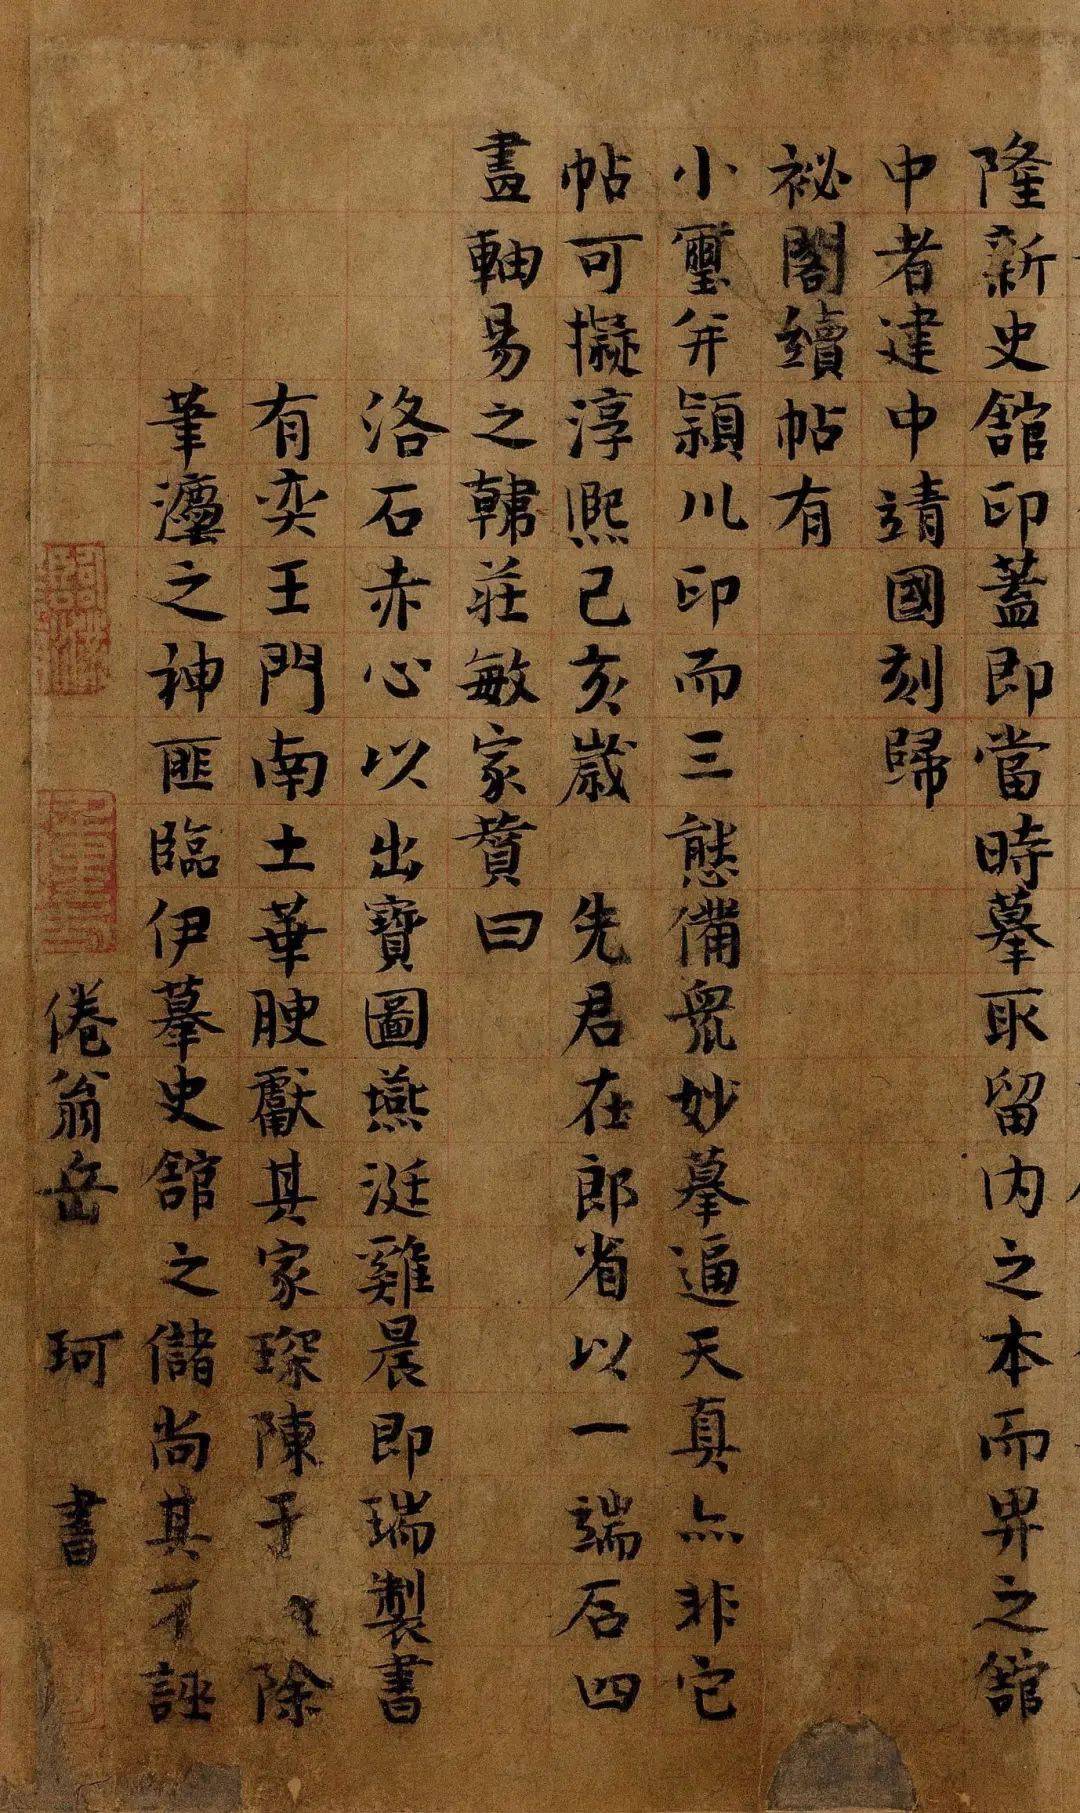 隆新史館印蓋即當時摹取留内之本而畀之館
中者建中靖國刻歸
祕閣續帖有
小璽并潁川印而三態備衆妙摹逼天真亦非它
帖可擬淳熙己亥歲 先君在郎省以一端石四
畫軸易之韓莊敏家贊曰
洛石赤心以出寶圖燕涎雞晨即瑞製書
有奕王門南土華腴獻其家琛陳于 除
筆瀍之神匪臨伊摹史館之儲尚其 誣
倦翁岳 珂 書